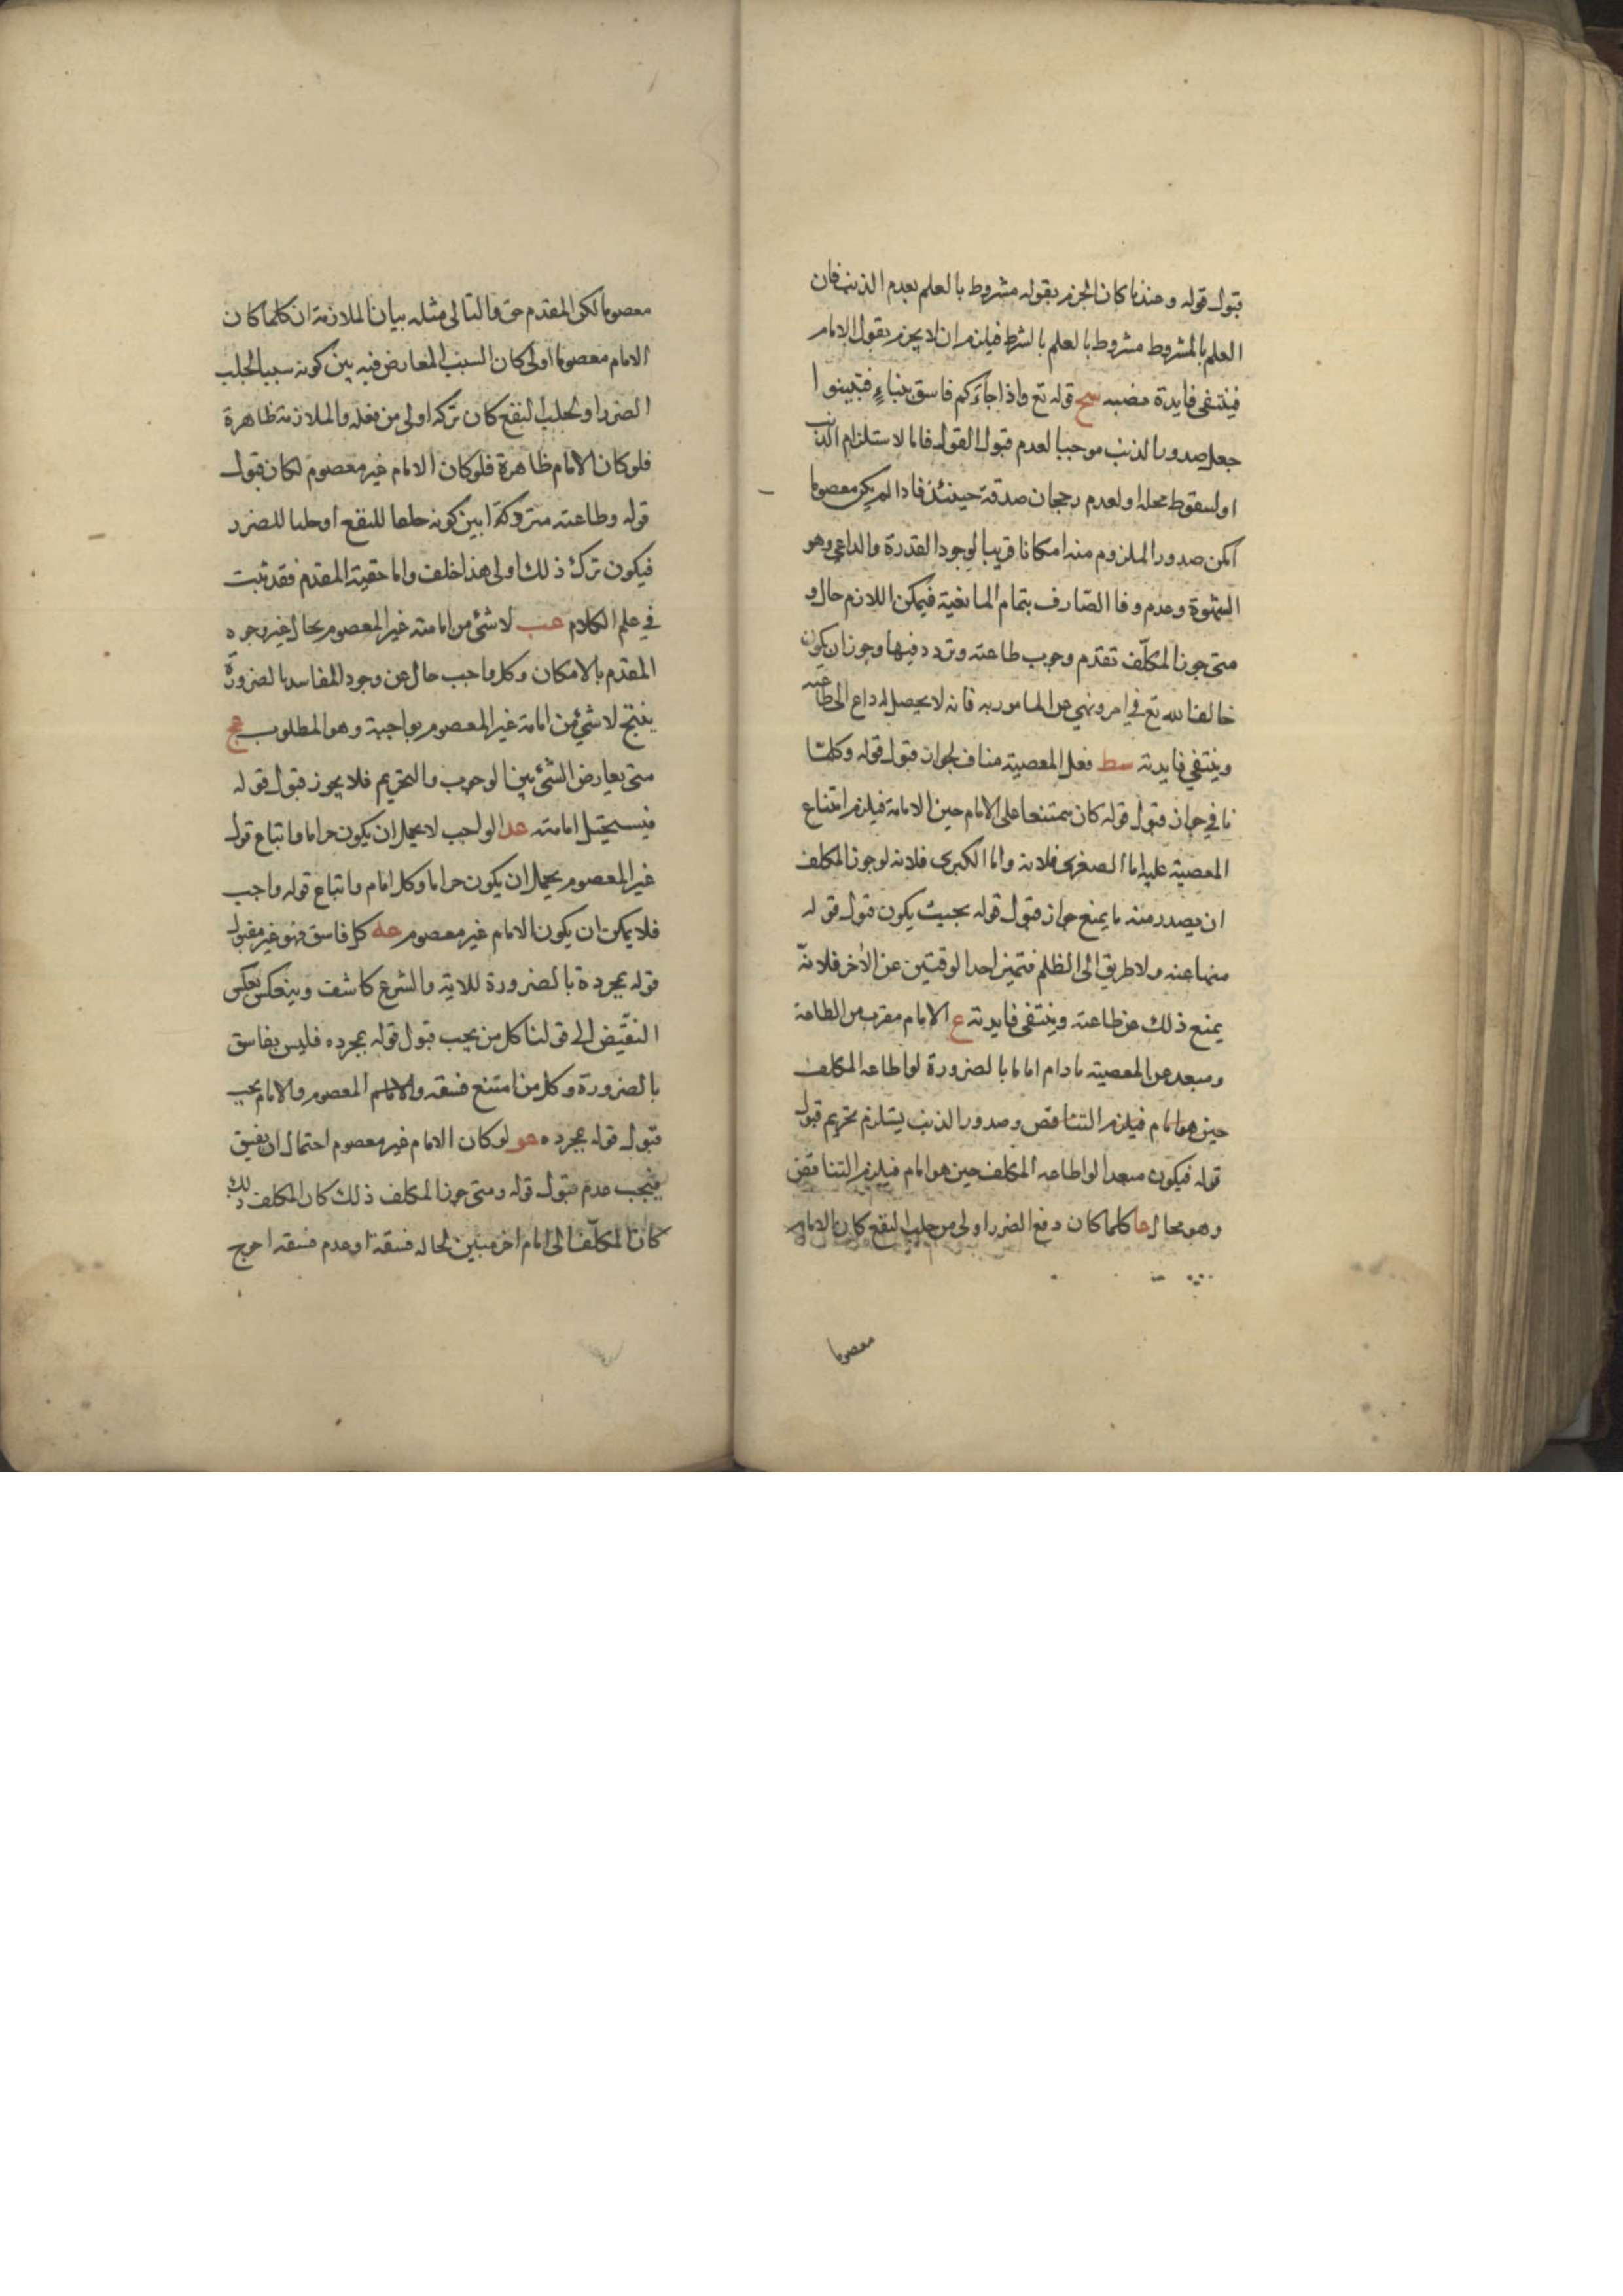 قبول قوله وعندنا كان الجزم بقوله مشروط بالعلم بعدم الذنب فان
العلم بالمشروط مشروط بالعلم بالشرط فيلزم ان لا يجزم بقول الامام
فينتفى فايدة نصبه سح قوله تع واذا جاءكم فاسق بنباءٍ فتبينوا
جعل صدور الذنب موجبا لعدم قبول القول فاما لاستلزام الذنب
او لسقوط محله او لعدم رجحان صدقه حينئذ فاذا لم يكن معصوما
امكن صدور الملزوم منه امكانا قريبا لوجود القدرة والداعي وهو
الشهوة وعدم وفا الصّارف بتمام المانعية فيمكن اللازم حال و
متى جوز المكلّف تقدم وجوب طاعته وتردد فيها وجوز ان يكون
خالف الله تع في امر ونهي عن المامور به فانه لا يحصل له داع الى طاعته
وينتفي فايدته سط فعل المعصية مناف لجواز قبول قوله وكلما
نافي جواز قبول قوله كان ممتنعا على الامام حين الامامة فيلزم امتناع
المعصية عليه اما الصغرى فلانه واما الكبرى فلانه لو جوز المكلف
ان يصدر منه ما يمنع جواز قبول قوله بحيث يكون قبول قوله
منهيا عنه ولا طريق الى الظلم فتميز احد الوقتين عن الأخر فلانّه
يمنع ذلك عن طاعته وينتفى فايدته ع الامام مقرب من الطاعة
ومبعد عن المعصية ما دام اماما بالضرورة لو اطاعه المكلف
حين هو امام فيلزم التناقض وصدور الذنب يستلزم تحريم قبول
قوله فيكون مبعدا لو اطاعه المكلف حين هو امام فيلزم التناقض
وهو محال عا كلما كان دفع الضرر اولى من جلب النفع كان الامام
معصوما
معصوما لكن المقدم حق فالتالي مثله بيان الملازمة ان كلما كان
الامام معصوما اولى كان السبب المعارض فيه بين كونه سببا لجلب
الضرر او لجلب النفع كان تركه اولى من فعله والملازمة ظاهرة
فلو كان الامام ظاهرة فلو كان الامام غير معصوم لكان قبول
قوله وطاعته متروكة ابين كونه جلبا للنفع او جلبا للضرر
فيكون ترك ذلك اولى هذا خلف واما حقية المقدم فقد ثبت
في علم الكلام عب لا شئ من امامة غير المعصوم بخال غير وجوه
المقدم بالامكان وكل واجب خال عن وجود المفاسد بالضرورة
ينتج لا شئ من امامة غير المعصوم بواجبة وهو المطلوب عج
متى يعارض الشئ بين الوجوب والتحريم فلا يجوز قبول قوله
فيستحيل امامته عد الواجب لا يحمل ان يكون حراما واتباع قول
غير المعصوم يحمل ان يكون حراما وكل امام واتباع قوله واجب
فلا يمكن ان يكون الامام غير معصوم عه كل فاسق فهو غير مقبول
قوله بمجرده بالضرورة للاية والشرع كاشف وينعكس بعكس
النقيض الى قولنا كل من يجب قبول قوله بمجرده فليس بفاسق
بالضرورة وكل من امتنع فسقه والامام المعصوم والامام يجب
قبول قوله بمجرده عو لو كان الامام غير معصوم احتمال ان يفيق
فيجب عدم قبول قوله ومتى جوز المكلف ذلك كان المكلف ذلك
كان المكلّف الى امام اخر مبين لحاله فسقه او عدم فسقه احوج